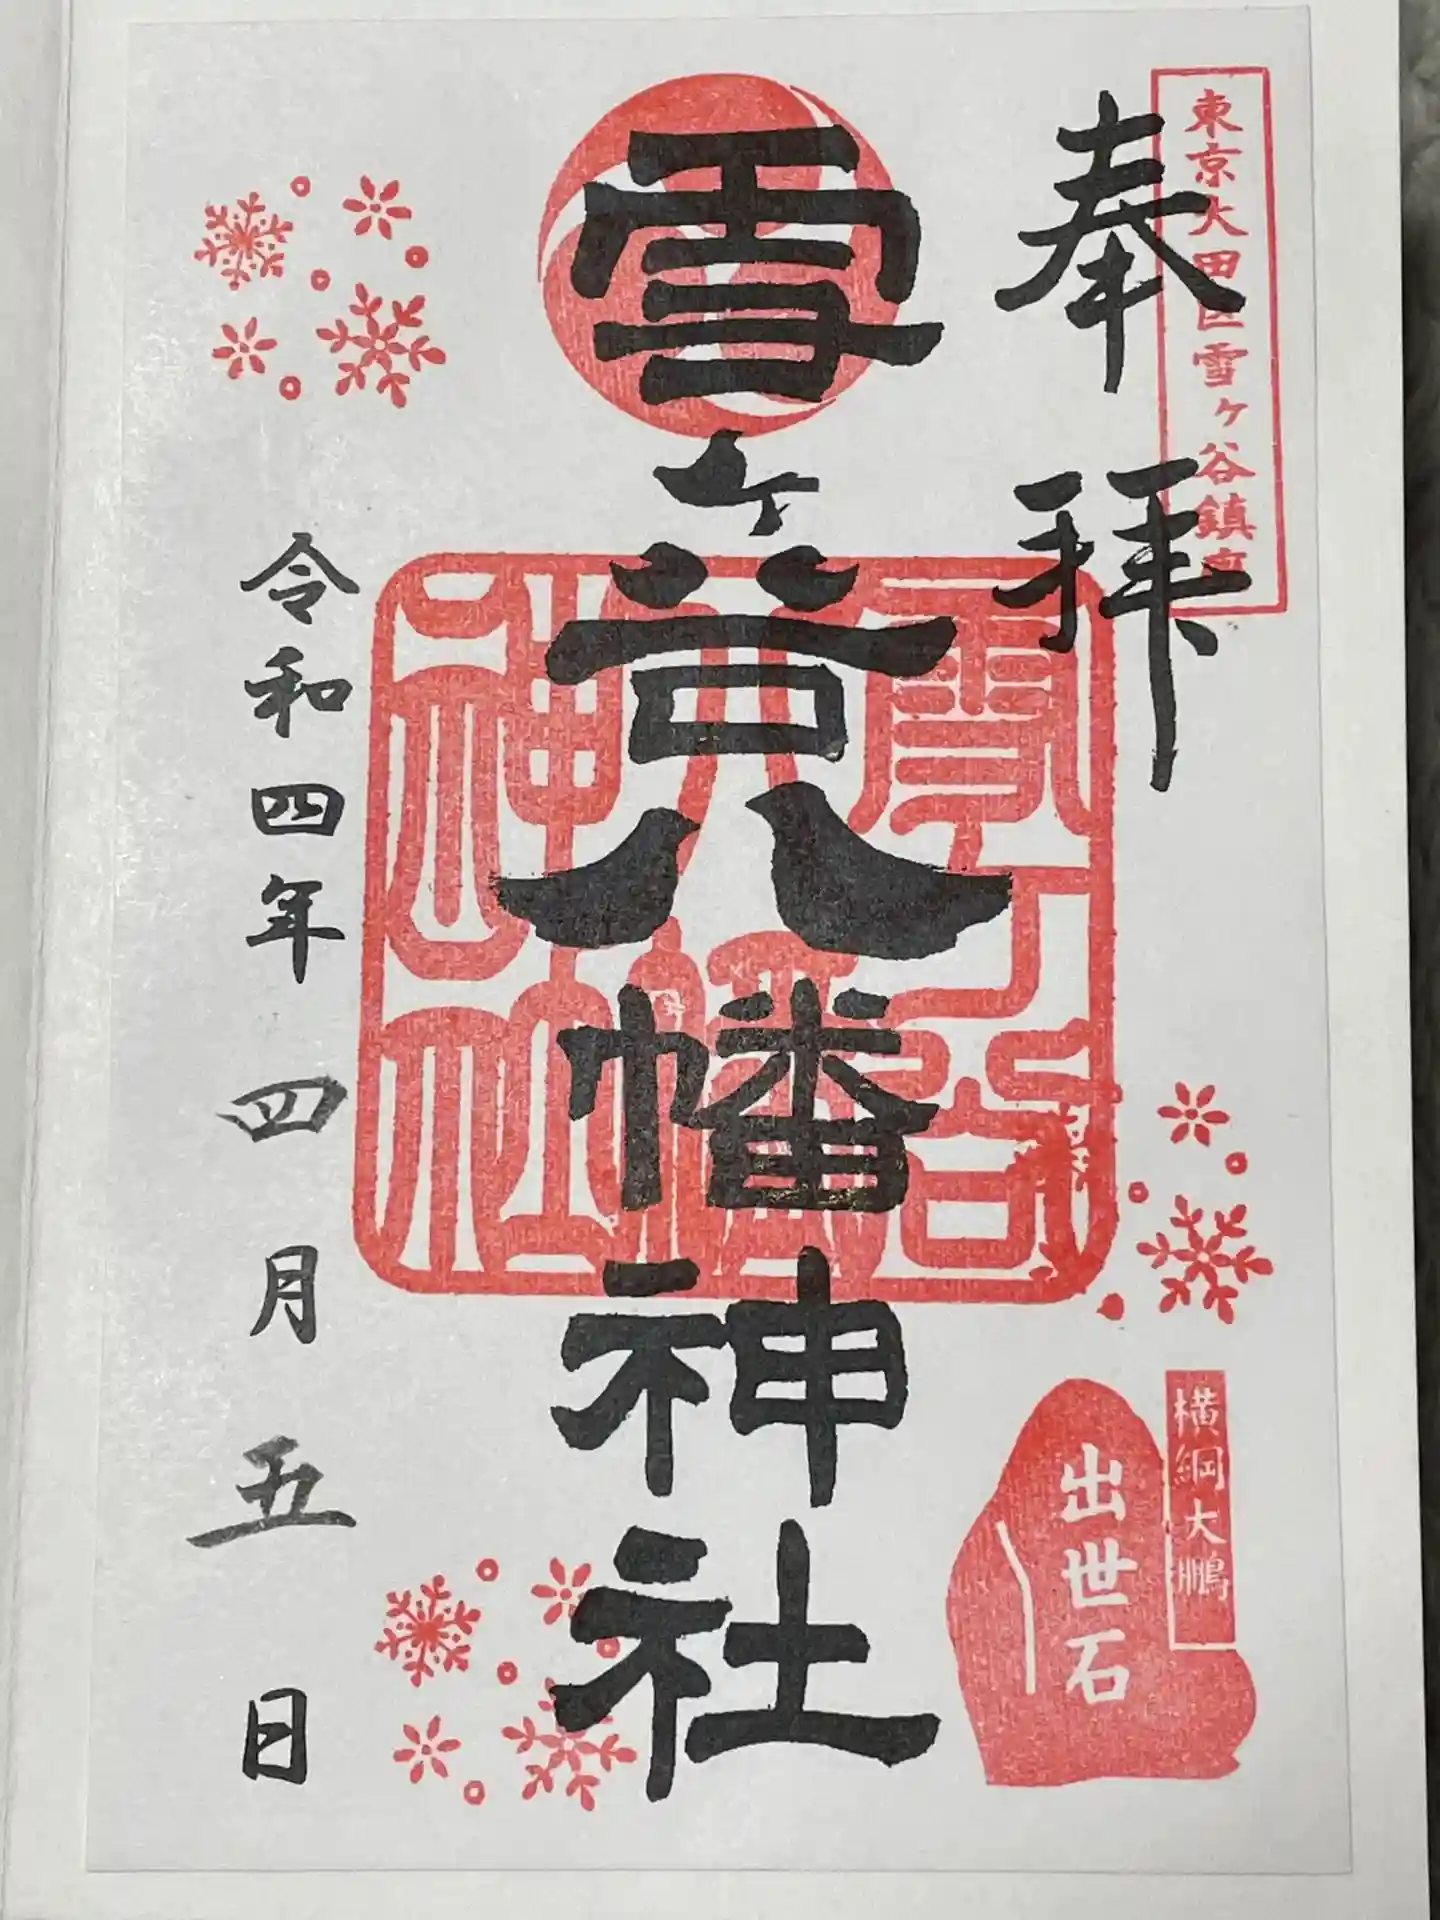 東京大田区雪ヶ谷鎮守
奉拝
横綱大鵬
出世石
雪ヶ谷八幡神社
雪ヶ谷
八幡
神社
令和四年四月五日